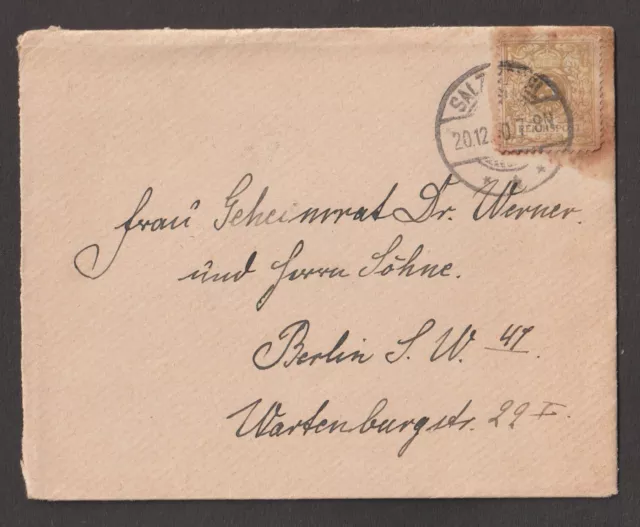 SALZ
20.12. 7-8N
REICHSPOST
Frau Geheimrat Dr. Werner.
und Herrn Söhne.
Berlin S. W. 47.
Wartenburgstr. 22 I.